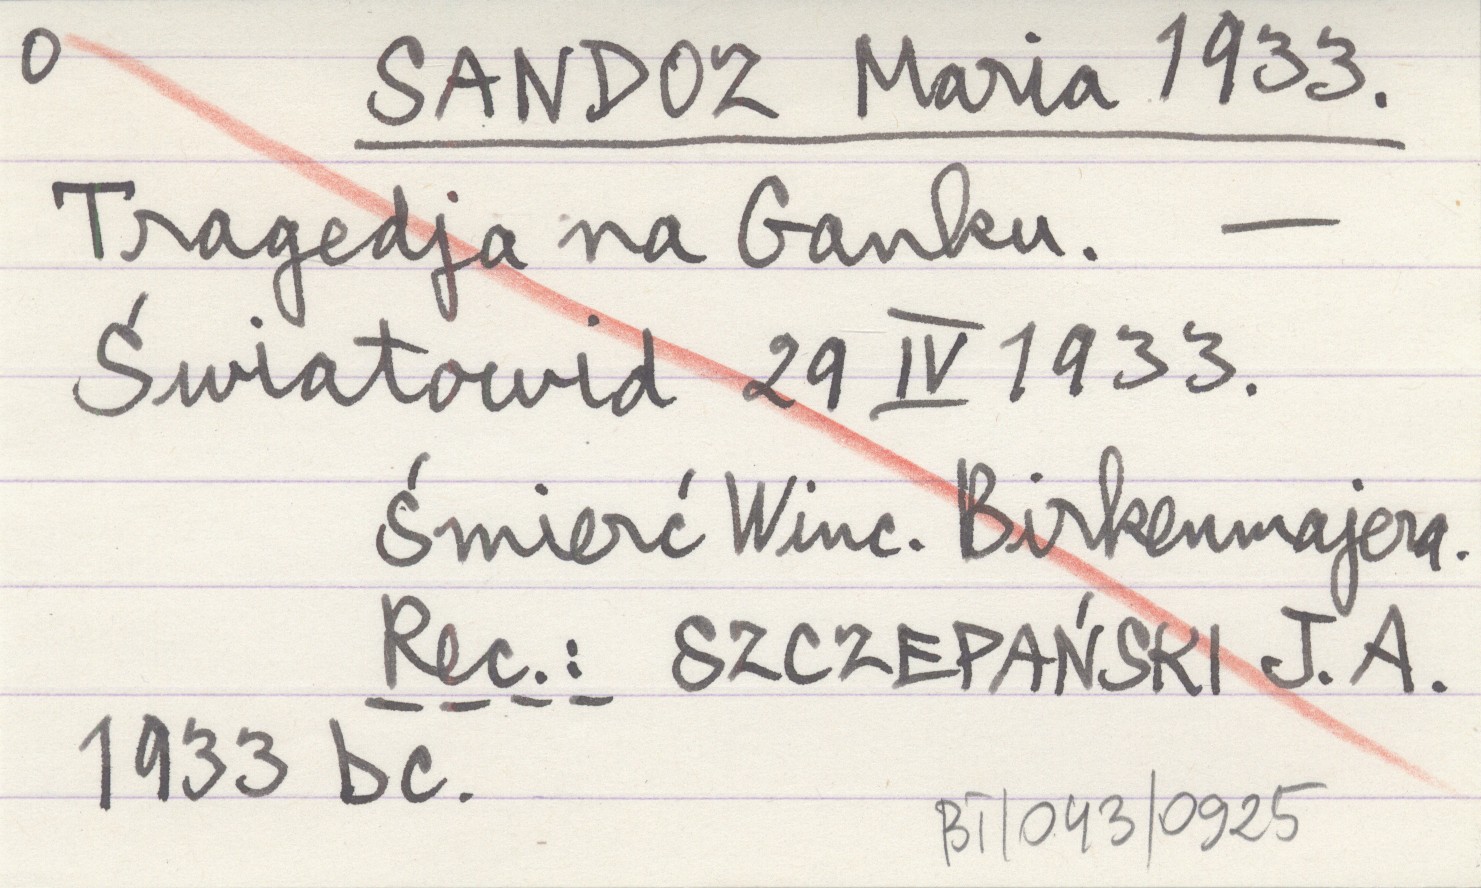 O SANDOZ Maria 1933.
Tragedja na Ganku. —
Światowid 29 IV 1933.
Śmierć Winc. Birkenmajera.
Rec.: SZCZEPAŃSKI J. A.
1933 bc.
BT/043/0925